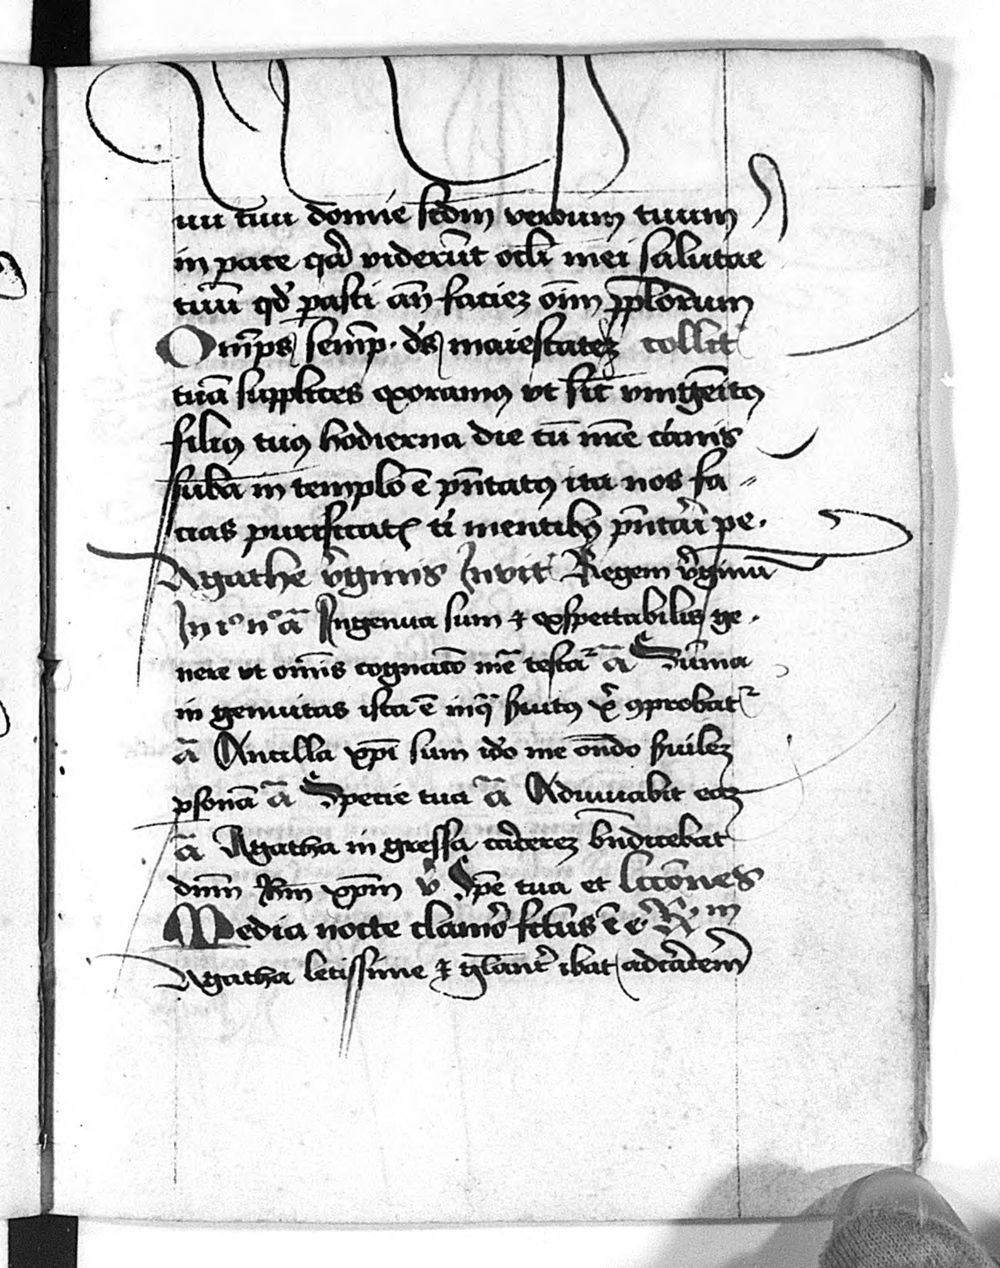 uu tuu domie scdm verbum tuum
in pace qa viderut ocli mei salutae
tuu qd pasti an faciez oim pplorum
Omps semp ds maiestatez collit
tua supplices exoramus ut sic unigeitus
filius tuus hodierna die cu nre carnis
suba in templo e pntatus ita nos fa
cias purificatis ti mentibus pntari pe.
Agathe virginis Invit Regem virginu
In io no a Ingenua sum et exspectabilis ge.
nere ut omnis cognatio mea testatur a Suma
in genuitas ista e in qua suitus xpi conprobatur
a Ancilla xpi sum ido me ondo suilez
psona a Specie tua a Adiuuabit eaz
a Agatha in gressa carcerez bndicebat
dnm Ihm xpm v Spe tua et Lccones
Media nocte clamor fctus e e R m
Agatha letissime et glanter ibat ad carcerem